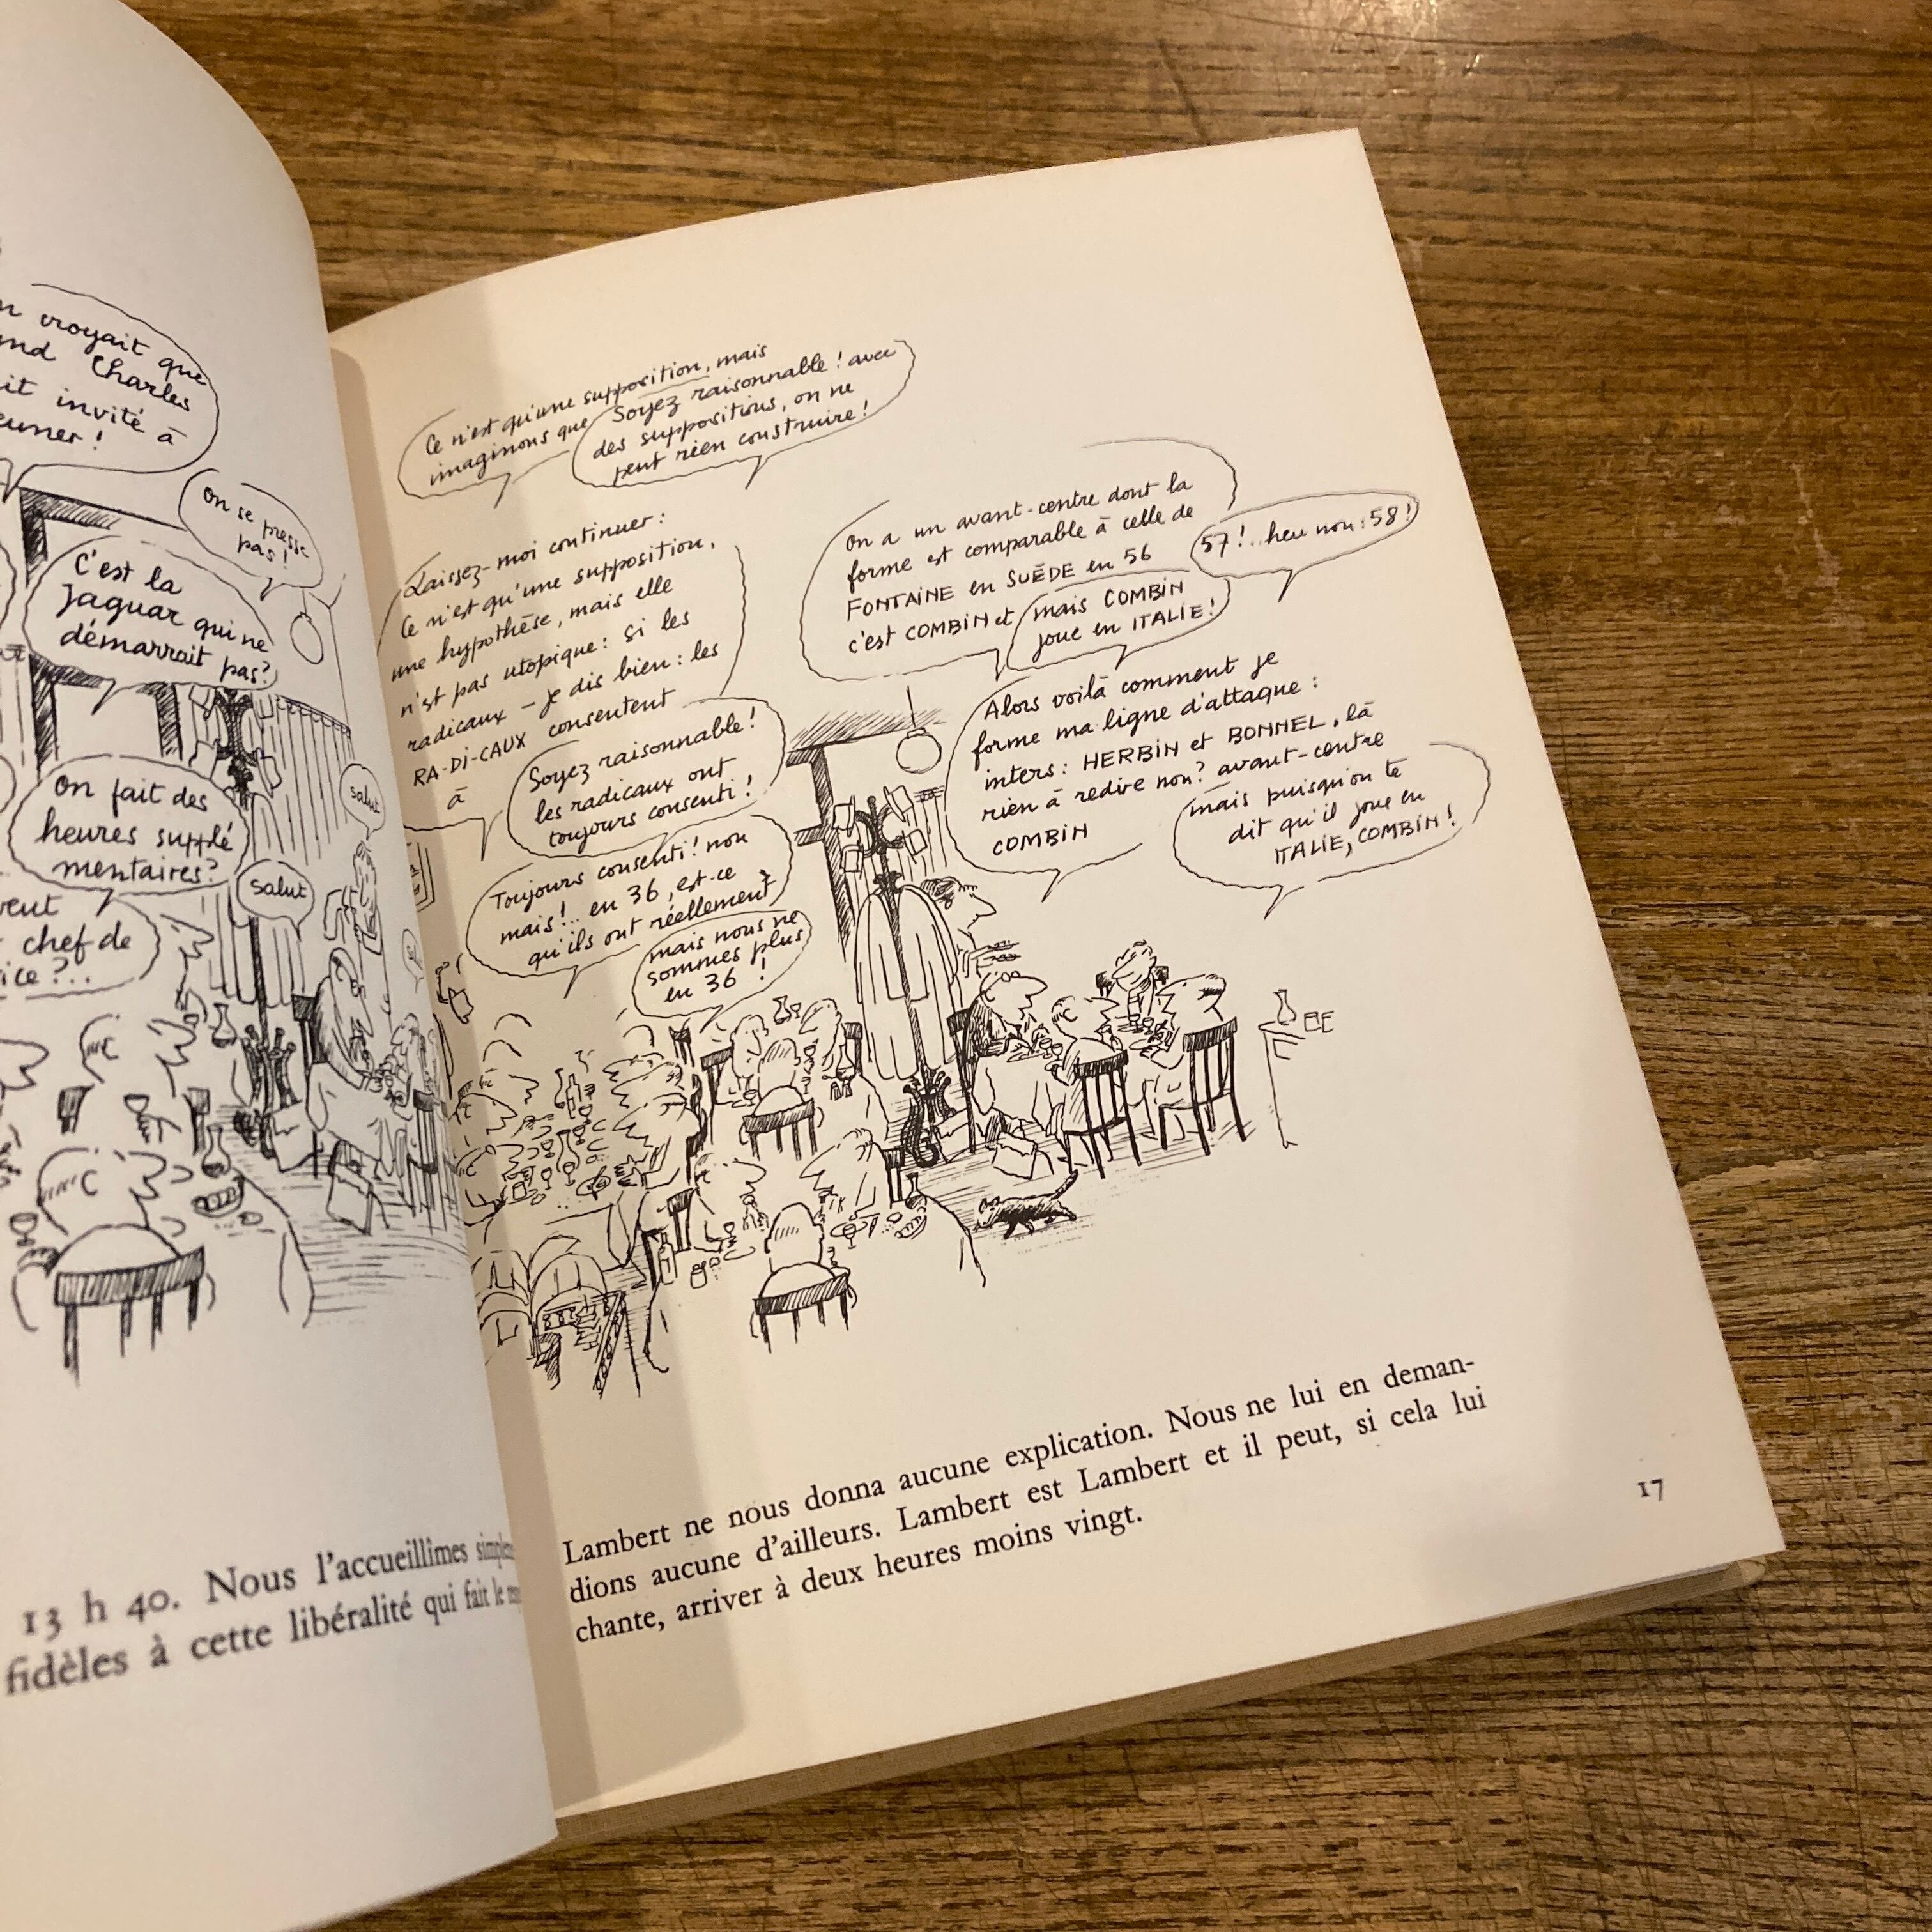 n croyait que
nd Charles
it invité à
euner !
On se presse
pas !
C'est la
Jaguar qui ne
démarrait pas ?
On fait des
heures supplé
mentaires ?
salut
salut
veut
chef de
ice ?...
13 h 40. Nous l'accueillîmes
fidèles à cette libéralité qui fait le
Ce n'est qu'une supposition, mais
imaginons que
Soyez raisonnable ! avec
des suppositions, on ne
peut rien construire !
Laissez-moi continuer :
Ce n'est qu'une supposition,
une hypothèse, mais elle
n'est pas utopique : si les
radicaux - je dis bien : les
RA-DI-CAUX consentent
à
Soyez raisonnable !
les radicaux ont
toujours consenti !
Toujours consenti ! non
mais !... en 36, est-ce
qu'ils ont réellement
mais nous ne
sommes plus
en 36 !
On a un avant-centre dont la
forme est comparable à celle de
FONTAINE en SUÈDE en 56
c'est COMBIN et
57 !.. heu non : 58 !
mais COMBIN
joue en ITALIE !
Alors voilà comment je
forme ma ligne d'attaque :
inters : HERBIN et BONNEL, là
rien à redire non ? avant-centre
COMBIN
mais puisqu'on te
dit qu'il joue en
ITALIE, COMBIN !
Lambert ne nous donna aucune explication. Nous ne lui en deman-
dions aucune d'ailleurs. Lambert est Lambert et il peut, si cela lui
chante, arriver à deux heures moins vingt.
17